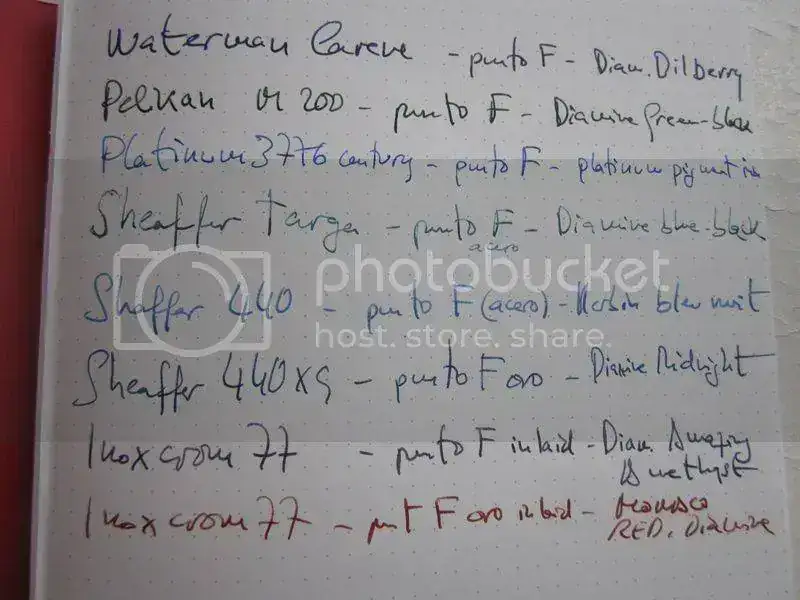 Waterman Carene - punto F - Diam. Dilberry
Pelikan M 200 - punto F - Diamine Green-black
Platinum 3776 century - punto F - platinum pigment ink
Sheaffer Targa - punto F - Diamine blue-black
acero
Sheaffer 440 - punto F (acero) - Herbin bleu nuit
Sheaffer 440XG - punto F oro - Diamine Midnight
Inoxcrom 77 - punto F inlaid - Diam. Amazing
Amethyst
Inoxcrom 77 - punt F oro inlaid - Monaco
RED. Diamine
photobucket
host. store. share.